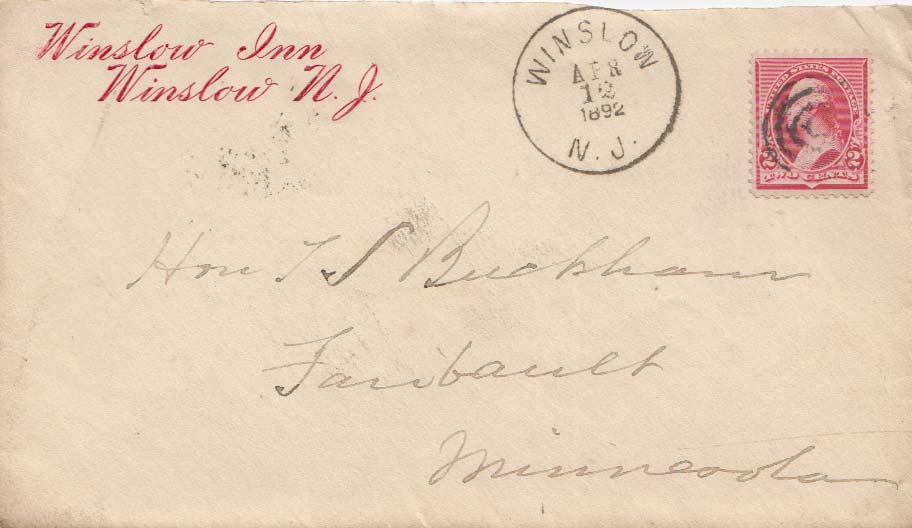 Winslow Inn
Winslow N. J.
WINSLOW
APR
12
1892
N. J.
UNITED STATES POSTAGE
2 2
Hon T S Buckham
Faribault
Minnesota